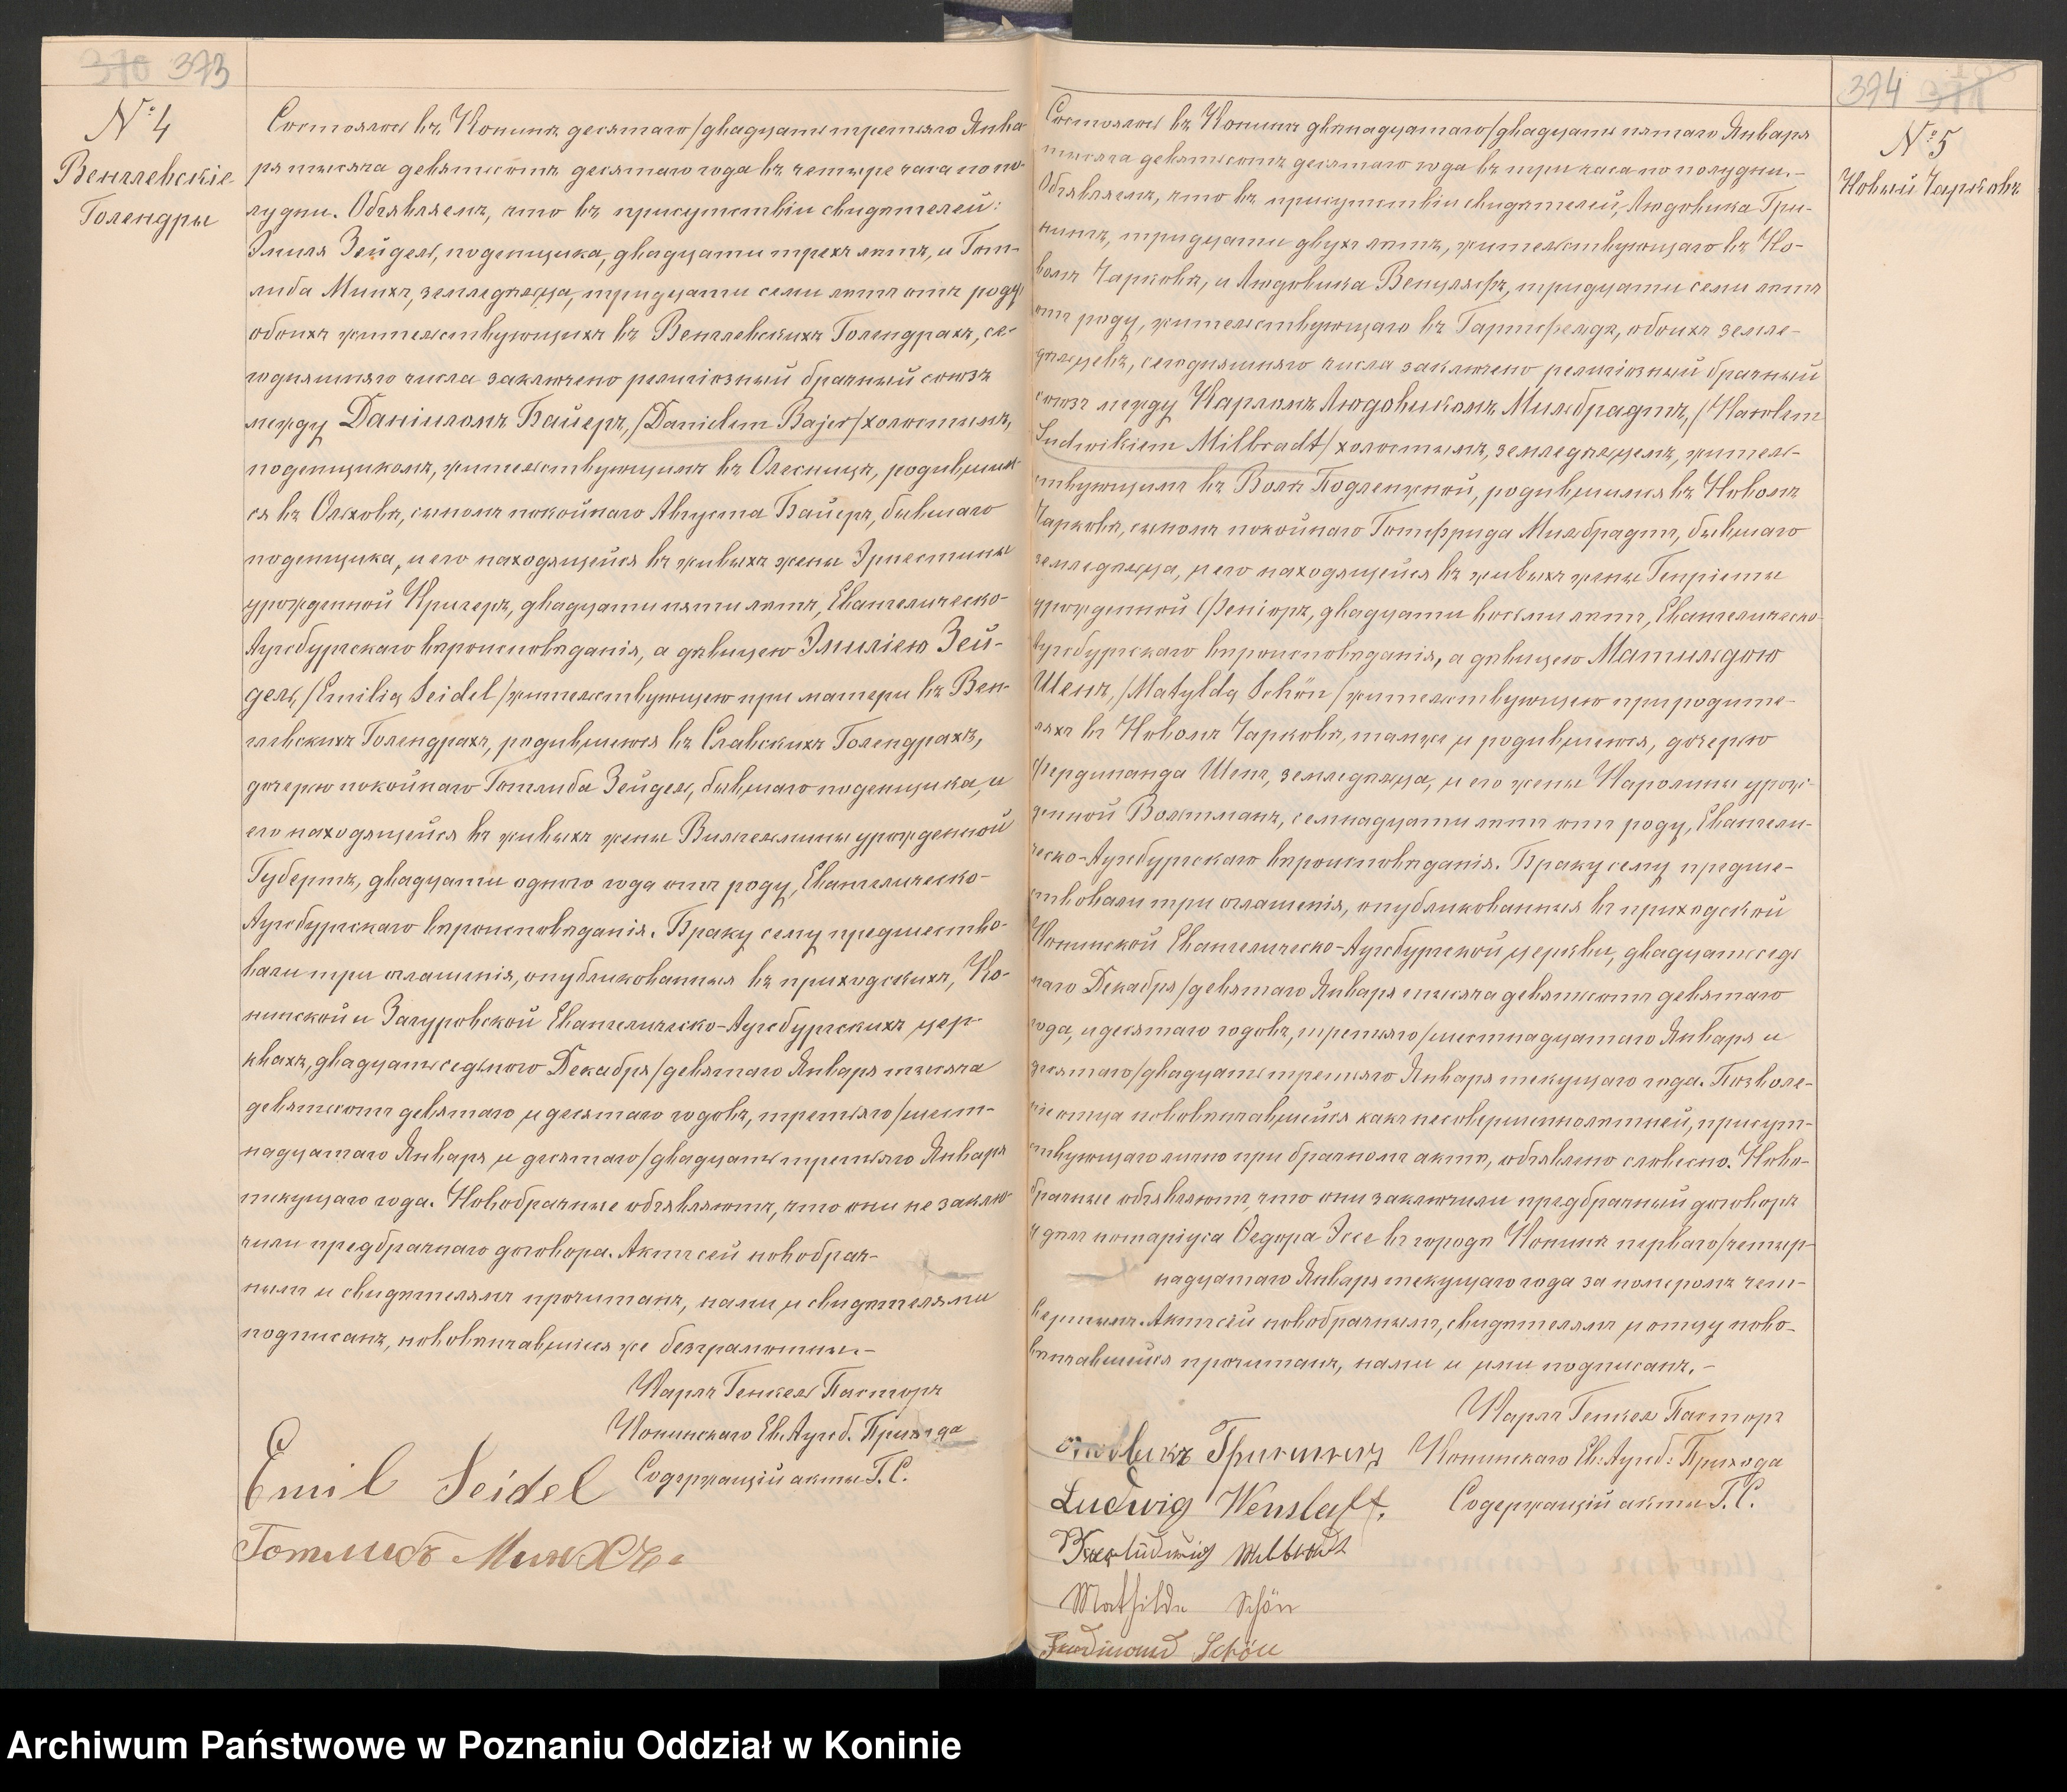 370 373
№ 4
Венглевскіе
Голендры
Состоялось въ Конинѣ десятаго/двадцать третьяго Янва-
ря тысяча девятьсотъ десятаго года въ четыре часа попо-
лудни. Объявляемъ, что въ присутствіи свидѣтелей:
Эмиля Зейдель, поденщика, двадцати трехъ лѣтъ, и Гот-
либа Минхъ, земледѣльца, тридцати семи лѣтъ отъ роду
обоихъ жительствующихъ въ Венглевскихъ Голендрахъ, се-
годняшняго числа заключено религіозный брачный союзъ
между Даніиломъ Байеръ, /Danielem Bajer/ холостымъ,
поденщикомъ, жительствующимъ въ Олесницѣ, родившим-
ся въ Ольховѣ, сыномъ покойнаго Августа Байеръ, бывшаго
поденщика, и его находящейся въ живыхъ жены Эрнестины
урожденной Кригеръ, двадцати пяти лѣтъ, Евангелическо-
Аугсбургскаго вѣроисповѣданія, а дѣвицею Эмиліею Зей-
дель, /Emilią Seidel/ жительствующею при матери въ Вен-
глевскихъ Голендрахъ, родившеюся въ Славскихъ Голендрахъ,
дочерью покойнаго Готлиба Зейдель, бывшаго поденщика, и
его находящейся въ живыхъ жены Вильгельмины урожденной
Губертъ, двадцати одного года отъ роду, Евангелическо-
Аугсбургскаго вѣроисповѣданія. Браку сему предшество-
вали три оглашенія, опубликованныя въ приходскихъ, Ко-
нинской и Загуровской Евангелическо-Аугсбургскихъ цер-
квахъ, двадцать седьмого Декабря/девятаго Января тысяча
девятьсотъ девятаго и десятаго годовъ, третьяго/шест-
надцатаго Января и десятаго/двадцать третьяго Января
текущаго года. Новобрачные объявляютъ, что они не заклю-
чили предбрачнаго договора. Актъ сей новобрач-
нымъ и свидѣтелямъ прочитанъ, нами и свидѣтелями
подписанъ, нововѣнчавшіеся же безграмотны.-
Карлъ Генкель Пасторъ
Конинскаго Ев. Аугсб. Прихода
Содержащій акты Г. С.
Emil Seidel
Готлибъ Минхъ.
374 371
№ 5
Новый Чарковъ
Состоялось въ Конинѣ двѣнадцатаго/двадцать пятаго Января
тысяча девятьсотъ десятаго года въ три часа по полудни.-
Объявляемъ, что въ присутствіи свидѣтелей, Людовика Гри-
тридцати двухъ лѣтъ, жительствующаго въ Но-
вомъ Чарковѣ, и Людовика Венцлафъ, тридцати семи лѣтъ
отъ роду, жительствующаго въ Гартфельдѣ, обоихъ земле-
дѣльцевъ, сегодняшняго числа заключено религіозный брачный
союзъ между Карломъ Людовикомъ Мильбрадтъ, /Karolem
Ludwikiem Milbradt/ холостымъ, земледѣльцемъ, житель-
ствующимъ въ Волѣ Подленжной, родившимся въ Новомъ
Чарковѣ, сыномъ покойнаго Готфрида Мильбрадтъ, бывшаго
земледѣльца, и его находящейся въ живыхъ жены Генріеты
урожденной Феніоръ, двадцати восьми лѣтъ, Евангелическо-
Аугсбургскаго вѣроисповѣданія, а дѣвицею Матильдою
Шенъ, /Matyldą Schön/ жительствующею при родите-
ляхъ въ Новомъ Чарковѣ, тамже и родившеюся, дочерью
Фердинанда Шенъ, земледѣльца, и его жены Каролины урож-
денной Вольтманъ, семнадцати лѣтъ отъ роду, Евангели-
ческо-Аугсбургскаго вѣроисповѣданія. Браку сему предше-
ствовали три оглашенія, опубликованныя въ приходской
Конинской Евангелическо-Аугсбургской церкви, двадцать седь-
маго Декабря/девятаго Января тысяча девятьсотъ девятаго
года, и десятаго годовъ, третьяго/шестнадцатаго Января и
десятаго/двадцать третьяго Января текущаго года. Позволе-
ніе отца нововѣнчавшейся какъ несовершеннолѣтней, присут-
ствующаго лично при брачномъ актѣ, объявлено словесно. Ново-
брачные объявляютъ, что они заключили предбрачный договоръ
у дѣлъ нотаріуса Ѳедора Эссе въ городѣ Конинѣ перваго/четыр-
надцатаго Января текущаго года за номеромъ чет-
вертымъ. Актъ сей новобрачнымъ, свидѣтелямъ и отцу ново-
вѣнчавшейся прочитанъ, нами и ими подписанъ.-
Карлъ Генкель Пасторъ
Конинскаго Ев. Аугсб. Прихода
Содержащій акты Г. С.
Ludwig Wenslaff.
Karl Ludwig Milbradt
Mathilde Schön
Ferdinand Schön
Archiwum Państwowe w Poznaniu Oddział w Koninie